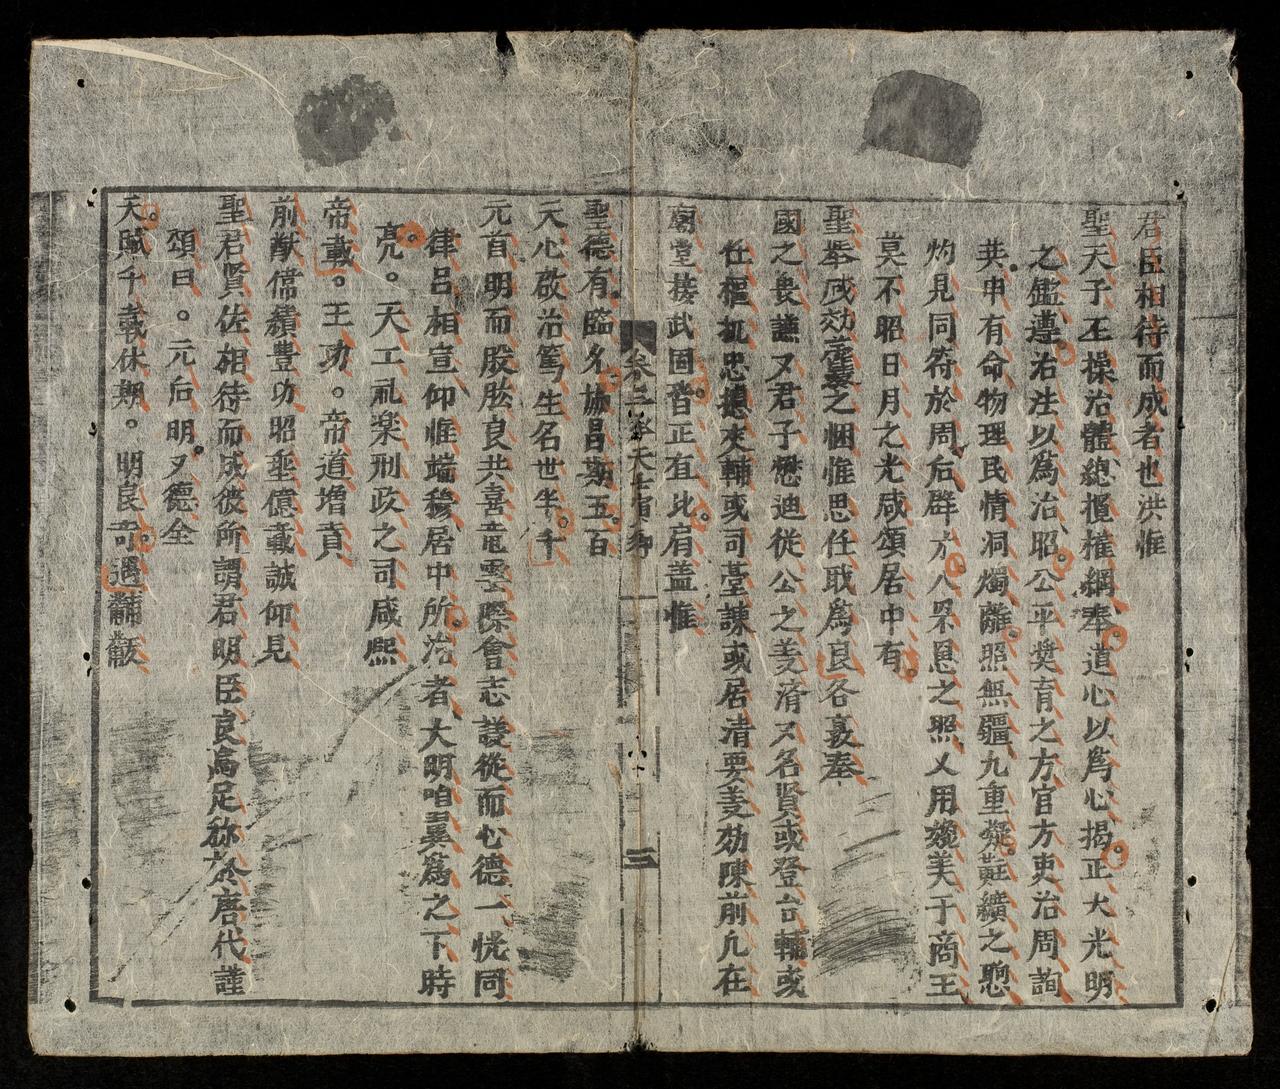 君臣相待而成者也洪惟
聖天子丕操治體總攬權綱奉道心以爲心揭正大光明
之鑑遵治法以爲治昭公平奬育之方官方吏治周詢
共申有命物理民情洞燭離照無疆九重凝黈纊之聦
灼見同符於周后辟才八采恩之照乂用娩美于商王
莫不昭日月之光咸頌居中有
聖奉成効藎之悃惟思任耿爲良各裏奉
國之長謨又君子懋迪從公之美済又名賢或登台輔或
任樞扼忠據夾輔或司臺諫或居清要美効陳前凡在
廟堂接武固皆正直比肩盖惟
卷三
三
聖德有臨名協昌期五百
天心啟治篤生名世半千
元首明而股肱良共喜竜雲際會志諼從而心德一恍同
律呂相宣仰惟端穆居中所治者大明咱翼爲之下時
亮。天工礼楽刑政之司咸熙
帝載。王功。帝道增賁
前猷偉績豊功昭垂億載誠仰見
聖君賢佐相待而成彼所謂君明臣良爲足称於唐代謹
頌曰。元后明。又德全
天。賦千載休期。明良奇遇黼黻